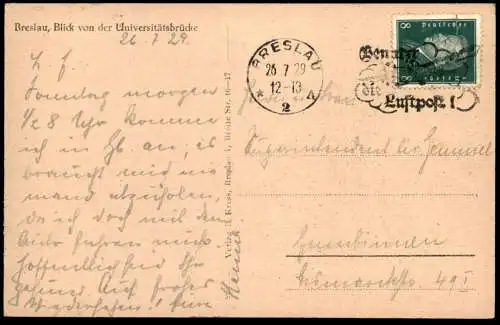 Breslau, Blick von der Universitätsbrücke
26.7.29.
L. E.
Sonntag morgen
1/2 8 Uhr komme
ich in an, es
braucht mich nie-
mand abzuholen,
da ich doch mit dem
Auto fahren muß.
Hoffentlich seid Ihr
gesund. Auf frohes
Wiedersehen! Eure
Verlag Kress, Breslau 1, Breite Str. 16-17
BRESLAU
26.7.29
12-13
* 2 A
Benutzt
die
Luftpost!
Deutsches
Reich
8
8
Superintendent
Gumbinnen
Bismarckstr. 49 I